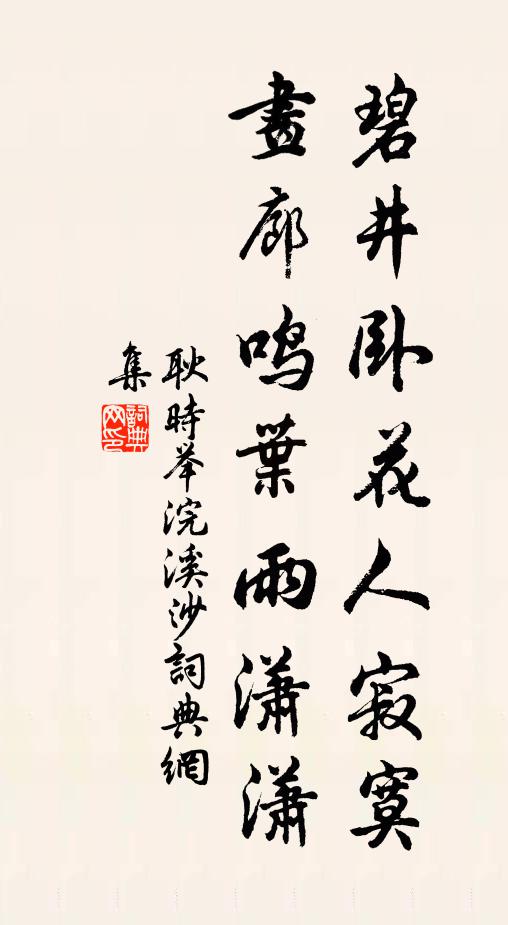 碧井卧花人寂寞
畫廊鳴葉雨瀟瀟
耿時举浣溪沙詞典網
集
詞典
网印